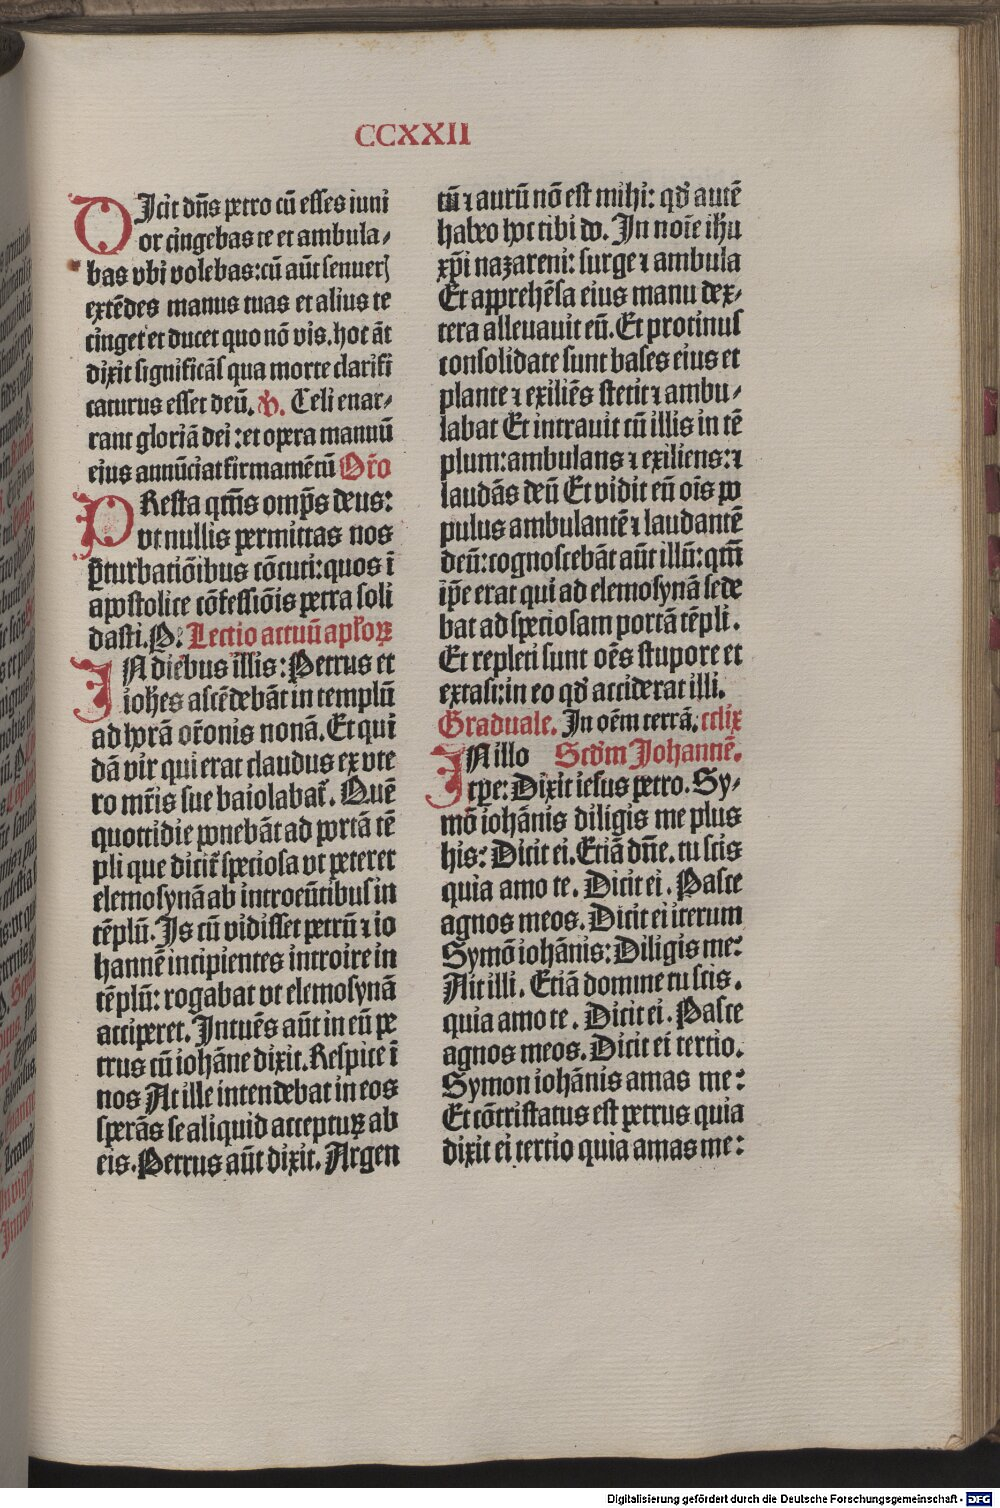 CCXXII
DJcit dn̄s petro cū esses iuni
or cingebas te et ambula⸗
bas vbi volebas:cū aūt senuer⸥
extēdes manus tuas et alius te
cinget et ducet quo nō vis.hoc āt
dixit significās qua morte clarifi
caturus esset deū. v̄. Celi enar⸗
rant gloriā dei:et opera manuū
eius annūciat firmamētū Or̄o
PResta qm̄s omp̄s deus:
vt nullis permittas nos
ꝑturbatiōibus cōcuti:quos ī
apostolice cōfessiōis petra soli
dasti.P̄. Lectio actuū apl̄oꝝ
JN diebus illis:Petrus et
ioh̄es ascēdebāt in templū
ad horā or̄onis nonā.Et qui
dā vir qui erat claudus ex vte
ro mr̄is sue baiolabat᷑. Quē
quottidie ponebāt ad portā tē
pli que dicit᷑ speciosa vt peteret
elemosynā ab introeūtibus in
tēplū.Js cū vidisset petrū ⁊ io
hannē incipientes introire in
tēplū:rogabat vt elemosynā
acciperet.Jntuēs aūt in eū pe
trus cū ioh̄āne dixit.Respice ī
nos At ille intendebat in eos
sperās se aliquid acceptuꝝ ab
eis.Petrus aūt dixit.Argen
tū ⁊ aurū nō est mihi: qd̄ autē
habeo hoc tibi do. Jn noīe ihū
xp̄i nazareni: surge ⁊ ambula
Et apprehēsa eius manu dex⸗
tera alleuauit eū.Et protinus
consolidate sunt bases eius et
plante ⁊ exiliēs stetit ⁊ ambu⸗
labat Et intrauit cū illis in tē
plum:ambulans ⁊ exiliens:⁊
laudās deū Et vidit eū oīs po
pulus ambulantē ⁊ laudantē
deū:cognoscebāt aūt illū:qm̄
ip̄e erat qui ad elemosynā sede
bat ad speciosam portā tēpli.
Et repleti sunt oēs stupore et
extasi:in eo qd̄ acciderat illi.
Graduale. Jn oēm terrā. cclix
JN illo Scd̄m Johannē.
tp̄e:Dixit iesus petro.Sy⸗
mō iohānis diligis me plus
his: Dicit ei.Etiā dn̄e.tu scis
quia amo te. Dicit ei. Pasce
agnos meos. Dicit ei iterum
Symō iohānis:Diligis me:
Ait illi. Etiā domine tu scis.
quia amo te. Dicit ei. Pasce
agnos meos. Dicit ei tertio.
Symon iohānis amas me:
Et cōtristatus est petrus quia
dixit ei tertio quia amas me:
Digitalisierung gefördert durch die Deutsche Forschungsgemeinschaft - DFG